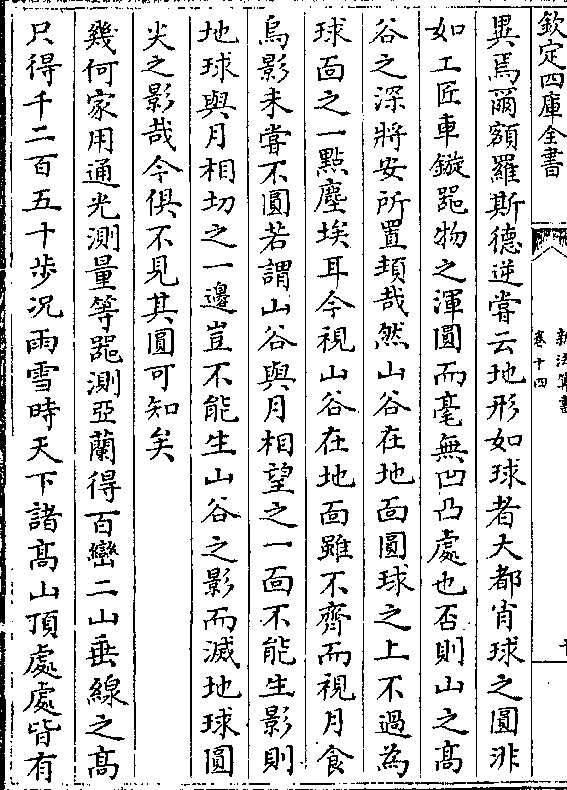 欽定四庫全書
新法算書
卷十四
異焉爾額羅斯德逆嘗云地形如球者大都肖球之圓非
如工匠車鏇噐物之渾圓而毫無凹凸處也否則山之髙
谷之深將安所置頬哉然山谷在地靣圓球之上不過為
球靣之一點塵埃耳今視山谷在地靣雖不齊而視月食
烏影未嘗不圓若謂山谷與月相望之一靣不能生影則
地球與月相切之一邊豈不能生山谷之影而滅地球圓
尖之影哉今俱不見其圓可知矣
幾何家用通光測量等噐測亞蘭得百巒二山垂線之髙
只得千二百五十歩况雨雪時天下諸髙山頂處處皆有